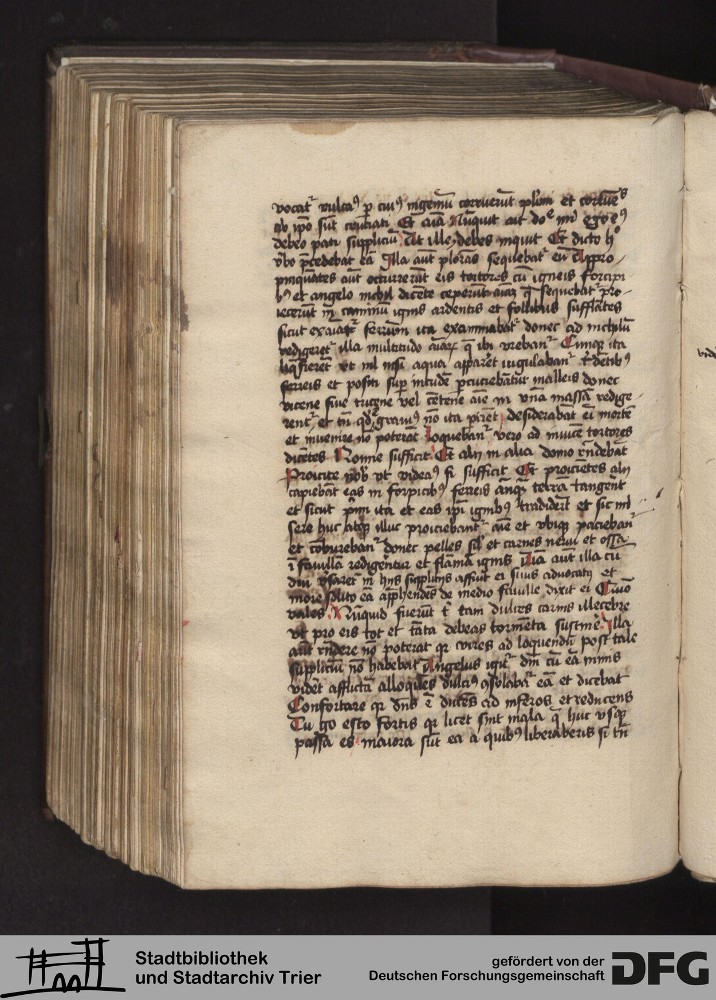 vocat᷒ vulcaꝰ ꝑ cuiꝰ ingeniū corruerūt pl'imi et
ab ip̄o sūt cruciati Et aīa Nūquit ait do᷒e mi ego
debeo pati suppliciū At ille debes inquit Et dicto h°
v̄bo p̄cedebat eā Illa aūt plorās sequebat᷒ eū Appro-
pinquātes aūt occurrerūt eis tortores cū igneis forcipi
bꝰ et angelo nichil dicēte ceperūt aīam q̄ sequebat᷒ pro-
iecerūt in caminū ignis ardentis et follibus sufflātes
sicut ferrum ita examinabat᷒ donec ad nichilū
redigeret᷒ illa multitudo aīarꝝ q̄ ibi vrebant᷒ Cūmqꝫ ita
liq̄fierēt vt nil nisi aqua apparēt iugulabant᷒
ferreis et positi sup̄ incude ꝑcuciebāt᷒ malleis donec
vicene siue tricene vel cētene aīe in vnā massā redige-
rent᷒ et tn̄ qd̄ grauiꝰ nō ita ꝑirēt desiderabāt eī mortē
et inuenire nō poterāt loquebant᷒ vero ad inuicē tortores
dicētes Nonne sufficit Et alij in alia domo rn̄debāt
Proicite nob̄ vt videaꝰ si sufficit Et proicietes alij
capiebāt eas in forpicibꝰ ferreis anq̄ꝫ terrā tangerēt
et sicut p̄mi ita et eas ip̄i ignibꝰ tradiderūt et sic mi
sere huc atqꝫ illuc proiciebant᷒ aīe et vbiqꝫ paciebant᷒
et cōburebant᷒ donec pelles sil' et carnes nerui et ossa
ī fauillā redigerētur et flāmā ignis aūt illa cū
diu v̄saret᷒ in hijs supplicijs affuit ei suus aduocatꝰ et
more solito eā app̄hendēs de medio fauille dixit ei Quō
vales Nūquid fuerūt t᷒ tam dulces carnis illecebre
vt pro eis tot et tāta debeas tormēta sustinē᷒ Illa
aūt rn̄dere nō poterat qꝛ vires ad loquendū post tale
suppliciū nō habebat Angelus igit᷒ dn̄i cū eā nimis
vidēt afflictā alloquēs dulciꝰ ꝯsolabat᷒ eā et dicebat
Confortare qꝛ dn̄s ē ducēs ad inferos et reducens
Tu g° esto fortis qꝛ licet sint mala q̄ huc vsqꝫ
passa es maiora sūt ea a quibꝰ liberaberis si tn̄
Stadtbibliothek
und Stadtarchiv Trier
gefördert von der
Deutschen Forschungsgemeinschaft
DFG